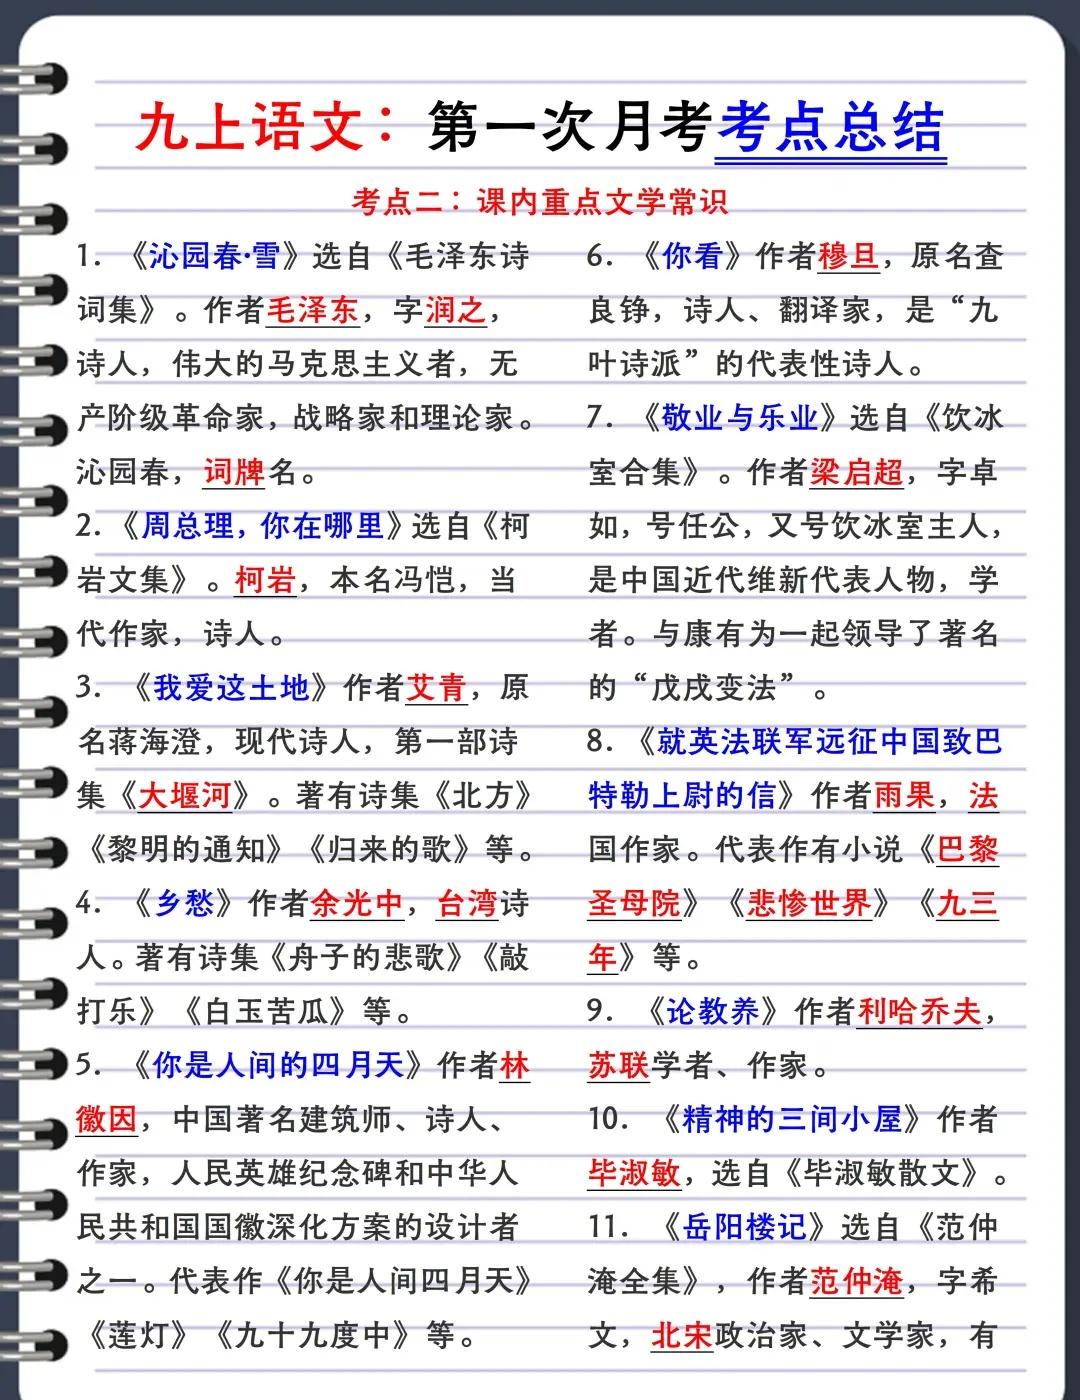 九上语文：第一次月考考点总结
考点二：课内重点文学常识
1. 《沁园春·雪》选自《毛泽东诗
词集》。作者毛泽东，字润之，
诗人，伟大的马克思主义者，无
产阶级革命家，战略家和理论家。
沁园春，词牌名。
2. 《周总理，你在哪里》选自《柯
岩文集》。柯岩，本名冯恺，当
代作家，诗人。
3. 《我爱这土地》作者艾青，原
名蒋海澄，现代诗人，第一部诗
集《大堰河》。著有诗集《北方》
《黎明的通知》《归来的歌》等。
4. 《乡愁》作者余光中，台湾诗
人。著有诗集《舟子的悲歌》《敲
打乐》《白玉苦瓜》等。
5. 《你是人间的四月天》作者林
徽因，中国著名建筑师、诗人、
作家，人民英雄纪念碑和中华人
民共和国国徽深化方案的设计者
之一。代表作《你是人间四月天》
《莲灯》《九十九度中》等。
6. 《你看》作者穆旦，原名查
良铮，诗人、翻译家，是“九
叶诗派”的代表性诗人。
7. 《敬业与乐业》选自《饮冰
室合集》。作者梁启超，字卓
如，号任公，又号饮冰室主人，
是中国近代维新代表人物，学
者。与康有为一起领导了著名
的“戊戌变法”。
8. 《就英法联军远征中国致巴
特勒上尉的信》作者雨果，法
国作家。代表作有小说《巴黎
圣母院》《悲惨世界》《九三
年》等。
9. 《论教养》作者利哈乔夫，
苏联学者、作家。
10. 《精神的三间小屋》作者
毕淑敏，选自《毕淑敏散文》。
11. 《岳阳楼记》选自《范仲
淹全集》，作者范仲淹，字希
文，北宋政治家、文学家，有